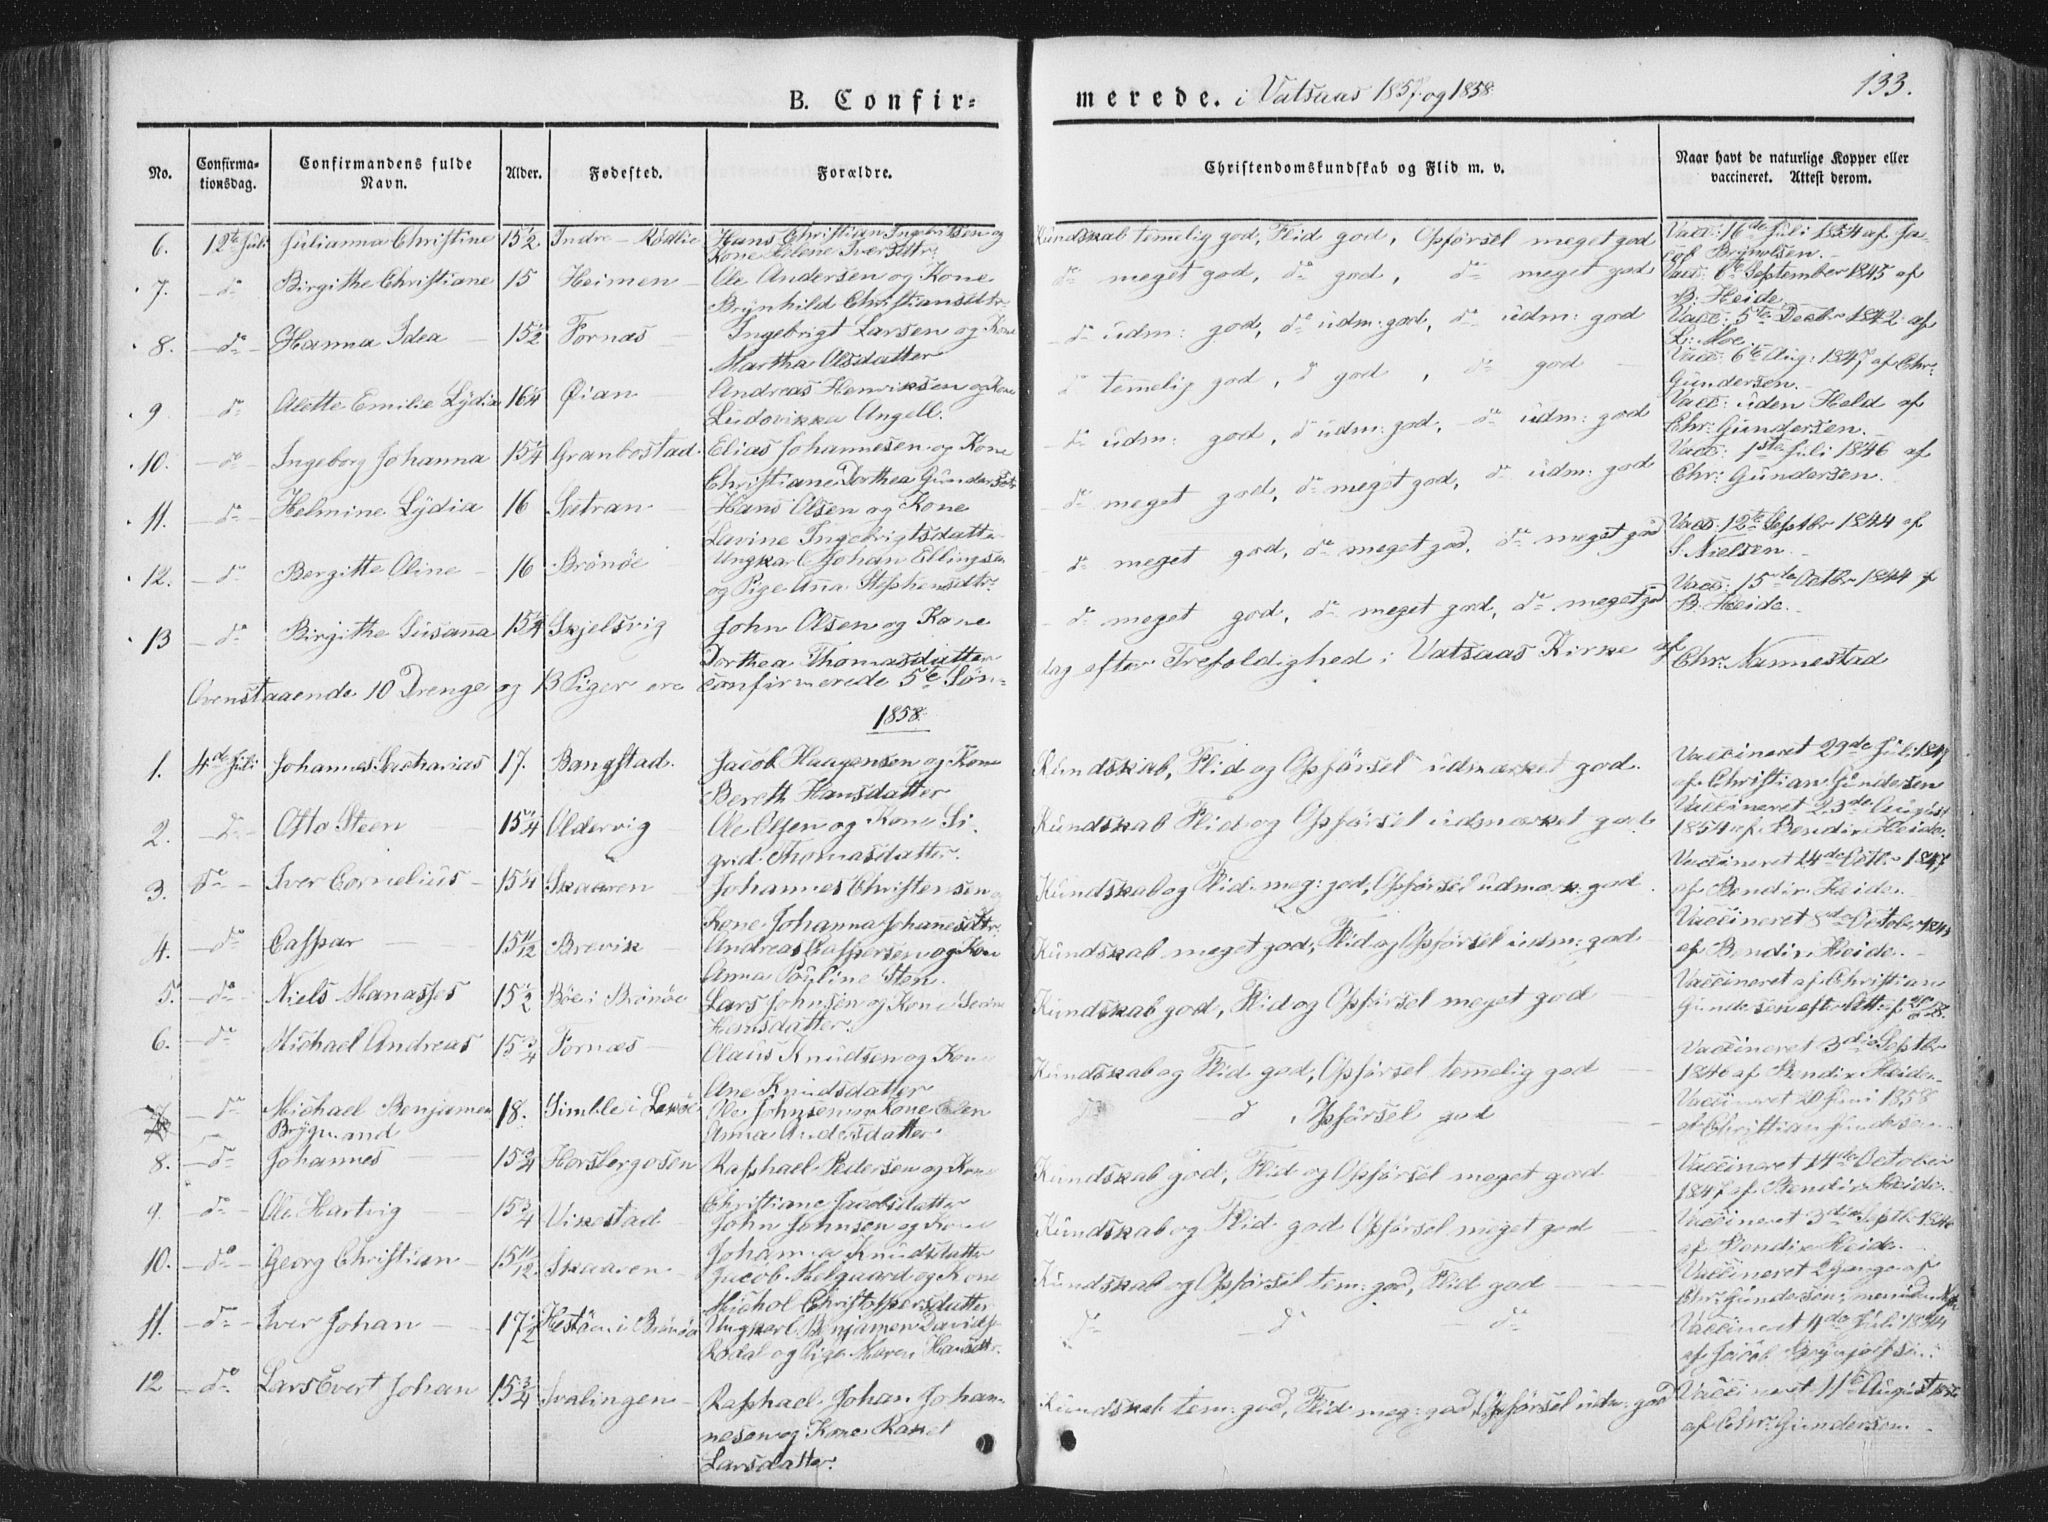 133.
B. Confirmerede. i Vatsaas 1857 og 1858
No. Confirmationsdag. Confirmandens fulde Navn. Alder. Fødested. Forældre. Christendomskundskab og Flid m. v. Naar havt de naturlige Kopper eller vaccineret. Attest derom.
6. 12te Juli Julianna Christine 15½ Indre-Rødlie Hans Christian Ingebrigtsen og Kundskab temelig god, Flid god, Opførsel meget god Vacc: 16de Juli 1854 af Ja-
Kone Iversdtr: cob Brynolsen.
7. do Birgithe Christiane 15 Heimen Ole Andersen og Kone do meget god, do god, do meget god Vacc: 6te September 1845 af
Brynhild Christiansdtr B. Heide.
8. do Hanna Idea 15½ Fornæs Ingebrigt Larsen og Kone do udm: god, do udm: god, do udm: god Vacc: 5te Decbr 1842 af
Martha Olsdatter L: Moe.
9 do Alette Emilie Lydia 16¼ Øian Andreas Henriksen og Kone do temelig god, do god, do god Vacc: 6te Aug: 1847 af Chr:
Ludovikka Angell. Gundersen.
10. do Ingeborg Johanna 15¼ Granbostad. Elias Johannesen og Kone do udm: god, do udm: god, do udm: god Vacc: uden Held af
Christiane Dorthea Gundersdtr Chr: Gundersen.
11. do Helmine Lydia 16 Sætran Hans Olsen og Kone do meget god, do meget god, do udm: god Vacc: 1ste Juli 1846 af
Lavine Ingebrigtsdatter Chr: Gundersen.
12. do Bergitte Oline 16 Brønøe Ungkarl Johan Ellingsen do meget god, do meget god, do meget god Vacc: 12te Septbr 1844 af
og Pige Ana Stephensdtr: S. Nielsen
13 do Birgithe Susanna 15¼ Skjelsvig John Olsen og Kone do meget god, do meget god, do meget god Vacc: 15de Octbr 1844 af
Dorthea Thomasdatter B. Heide.
Ovenstaaende 10 Drenge og 13 Piger ere confirmerede 5te Søn- dag efter Trefoldighed i Vatsaas Kirke af Chr: Nannestad
1858.
1. 4de Juli Johannes Zacharias 17. Bangstad. Jacob Haagensen og Kone Kundskab, Flid og Opførsel udmærket god. Vaccineret 29de Juli 1847
Bereth Hansdatter af Christian Gundersen
2. do Otto Steen 15¼ Oldervig Ole Olsen og Kone Si- Kundskab Flid og Opførsel udmærket god. Vaccineret 23de August
grid Thomasdatter. 1854 af Bendix Heide.
3. do Iver Cornelius 15¼ Skaaren Johannes Christensen og Kundskab og Flid meg: god, Opførsel udmærk. god. Vaccineret 14de Octbr 1847
Kone Johanna Johannesdtr: af Bendix Heide.
4. do Caspar 15 11/12 Brevik Andreas Caspersen og Kone Kundskab meget god; Flid og Opførsel udm: god Vaccineret 8de October
Anna Pauline Sten. af Bendix Heide.
5. do Niels Manasses 15½ Bøe i Brønøe Lars Johnsen og Kone Kundskab god, Flid og Opførsel meget god Vaccineret af Christian
Hansdatter. Gundersen efter Att: af
6. do Michael Andreas 15¾ Fornæs Olaus Knudsen og Kone Kundskab og Flid god, Opførsel temelig god Vaccineret 3die Septbr
Ane Knudsdatter 1846 af Bendix Heide.
7 do Michael Benjamen 18. Simble i Ole Johnsen og Kone Elen do do, Opførsel god Vaccineret 20 Juni 1858
Anna Andersdatter af Christian Gundersen
8. do Johannes 15¾ Horsbergosen Raphael Pedersen og Kone Kundskab god, Flid og Opførsel meget god Vaccineret 14de October
Christiane Jacobsdatter 1847 af Bendix Heide.
9. do Ole Hartvig 15¾ Vikestad John Johnsen og Kone Kundskab og Flid god Opførsel meget god Vaccineret 3die Septbr 1846
Johanna Knudsdatter af Bendix Heide.
10. do Georg Christian 15 11/12. Skaaren Jacob Helgaard og Kone Kundskab og Opførsel tem: god, Flid god Vaccineret 2 Gange af
Michol Christophersdatter Chr: Gundersen, men uden
11. do Iver Johan 17½ Hestøen i Brønøe Ungkarl Benjamen Davids. do do do Vaccineret 11de Juli 1844
Rødal og Pige Maren Hansdtr. af Jacob Brynjolfsen.
12 do Lars Evert Johan 15¾ Svalingen Raphael Johan Johan- Kundskab tem: god, Flid meg: god, Opførsel udm: god Vaccineret 11te August
nesen og Kone Ranet af Chr: Gundersen
Larsdatter.